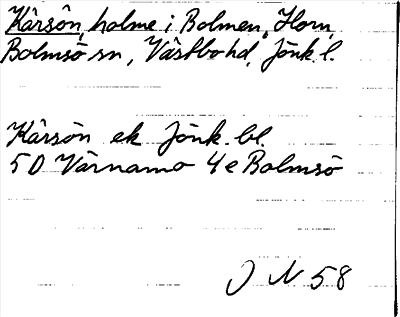 Kårsön, holme i Bolmen, Horn,
Bolmsö sn, Västbo hd, Jönk. l.
Kårsön ek Jönk. bl.
5D Värnamo 4e Bolmsö
J N 58